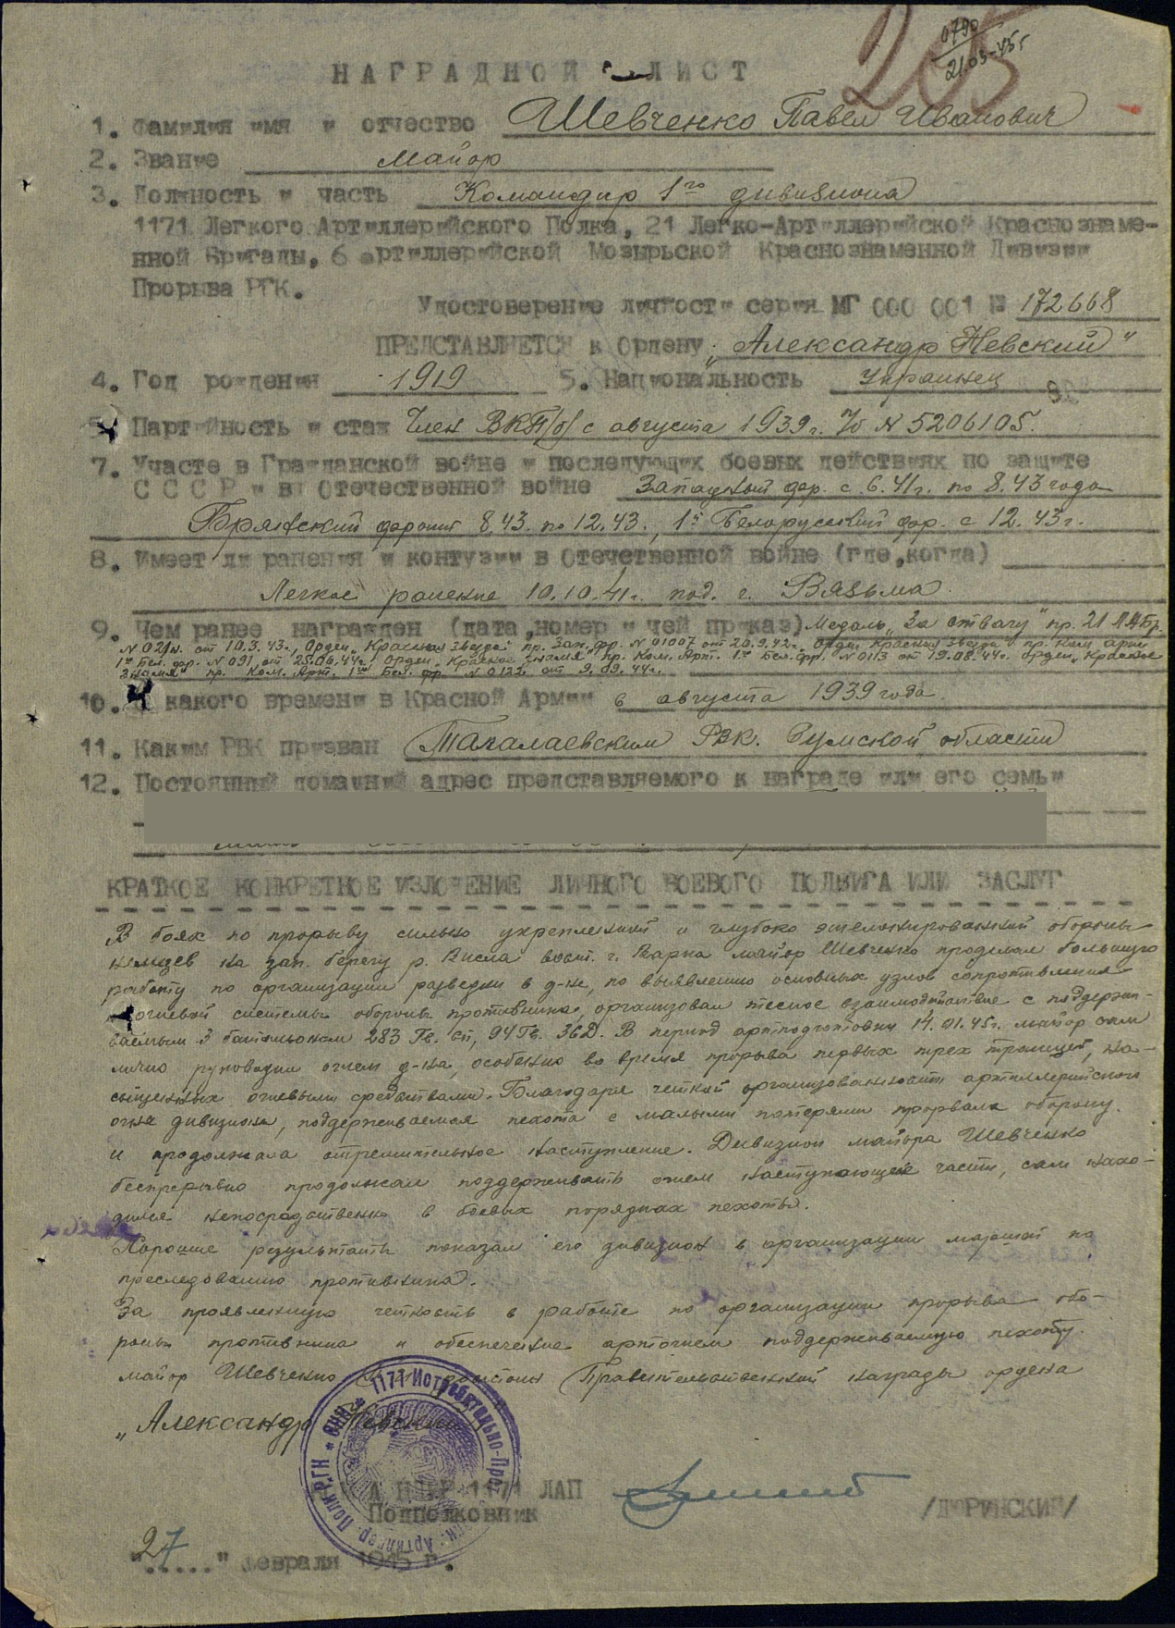 205
0790
21.03-45г
НАГРАДНОЙ ЛИСТ
1. Фамилия имя и отчество Шевченко Павел Иванович
2. Звание майор
3. Должность и часть Командир 1го дивизиона
1171 Легкого Артиллерийского Полка, 21 Легко-Артиллерийской Краснознаме-
нной Бригады, 6 Артиллерийской Мозырьской Краснознаменной Дивизии
Прорыва РГК.
Удостоверение личности серия МГ 000 001 № 172668
ПРЕДСТАВЛЯЕТСЯ к Ордену „Александр Невский"
4. Год рождения 1919 5. Национальность украинец
Партийность и стаж Член ВКП/б/ с августа 1939г. П/б N 5206105.
7. Участе в Гражданской войне и последующих боевых действиях по защите
СССР и в Отечественной войне Западный фр. с 6.41г. по 8.43 года
Брянский фронт 8.43. по 12.43., 1й Белорусский фр. с 12.43г.
8. Имеет ли ранения и контузии в Отечественной войне (где, когда)
Легкое ранение 10.10.41г. под. г. Вязьма.
9. Чем ранее награжден (дата, номер и чей приказ) Медаль „За отвагу" пр. 21 ЛАБр.
N 021н. от 10.3.43г., Орден „Красная звезда" пр. Зап. фр. N 01007 от 20.9.42г. Орден „Красная звезда" пр. Ком. Арт.
1го Бел. фр. N 091, от 25.06.44г. Орден „Красное знамя" пр. Ком. Арт. 1го Бел. фр. N 0113 от 19.08.44г. Орден „Красное
знамя" пр. Ком. Арт. 1го Бел. фр. N 0122 от 9.09.44г.
10. С какого времени в Красной Армии с августа 1939 года.
11. Каким РВК призван Талалаевским РВК. Сумской области
12. Постоянный домашний адрес представляемого к награде или его семьи
КРАТКОЕ КОНКРЕТНОЕ ИЗЛОЖЕНИЕ ЛИЧНОГО БОЕВОГО ПОДВИГА ИЛИ ЗАСЛУГ
В боях по прорыву сильно укрепленной и глубоко эшелонированной обороны
немцев на зап. берегу р. Висла вост. г. Варка майор Шевченко проделал большую
работу по организации разведки в д-не, по выявлению основных узлов сопротивления
и огневой системы обороны противника, организовал тесное взаимодействие с поддержи-
ваемым 3 батальоном 283 Гв. сп, 94 Гв. ЗСД. В период артподготовки 14.01.45г. майор сам
лично руководил огнем д-на, особенно во время прорыва первых трех траншей, на-
сыщенных огневыми средствами. Благодаря четкой организованности артиллерийского
огня дивизиона, поддерживаемая пехота с малыми потерями прорвала оборону
и продолжала стремительное наступление. Дивизион майора Шевченко
беспрерывно продолжал поддерживать огнем наступающие части, сам нахо-
дился непосредственно в боевых порядках пехоты.
Хорошие результаты показал его дивизион в организации маршей по
преследованию противника.
За проявленную четкость в работе по организации прорыва обо-
роны противника и обеспечение артогнем поддерживаемую пехоту.
майор Шевченко достоин Правительственной награды ордена
„Александр Невский"
1171 Истребительно-Про
Артиллер. Полк РГК * СНК *
КОМАНДИР 1171 ЛАП
Подполковник /ДЮРИНСКИЙ/
"27" февраля 1945 г.